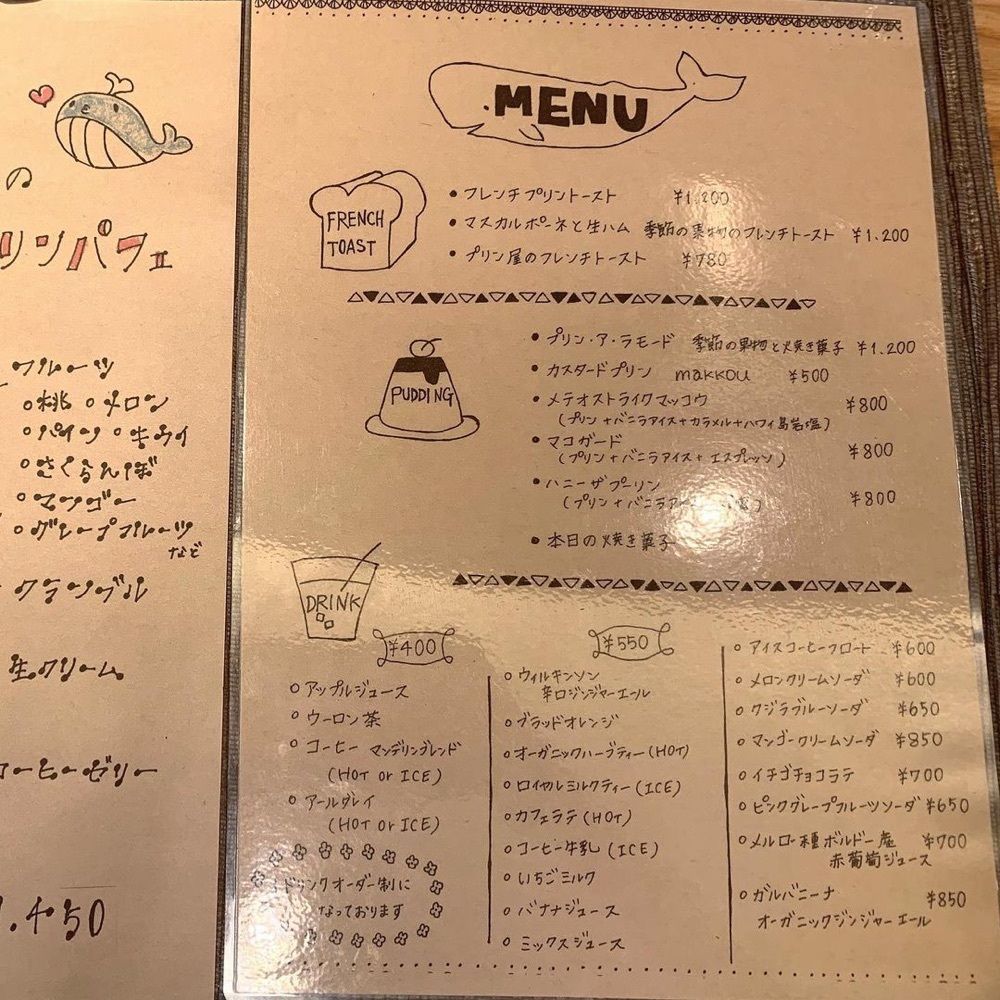 の
リンパフェ
フルーツ
○桃 ○メロン
○パイン ○キウイ
○さくらんぼ
○マンゴー
○グレープフルーツ
など
クランブル
生クリーム
コーヒーゼリー
.450
MENU
FRENCH
TOAST
• フレンチプリントースト ¥1,200
• マスカルポーネと生ハム 季節の果物のフレンチトースト ¥1.200
• プリン屋のフレンチトースト ¥780
PUDDING
• プリン・ア・ラモード 季節の果物と焼き菓子 ¥1.200
• カスタードプリン makkou ¥500
• メテオストライクマッコウ ¥800
(プリン+バニラアイス+カラメル+ハワイ島岩塩)
• マコガード ¥800
(プリン+バニラアイス+エスプレッソ)
• ハニーザプーリン ¥800
(プリン+バニラア
• 本日の焼き菓子
DRINK
¥400
○ アップルジュース
○ ウーロン茶
○ コーヒー マンデリンブレンド
(HOT or ICE)
○ アールグレイ
(HOT or ICE)
ドリンクオーダー制に
なっております
¥550
○ ウィルキンソン
辛口ジンジャーエール
○ ブラッドオレンジ
○ オーガニックハーブティー(HOT)
○ ロイヤルミルクティー(ICE)
○ カフェラテ(HOT)
○ コーヒー牛乳(ICE)
○ いちごミルク
○ バナナジュース
○ ミックスジュース
○ アイスコーヒーフロート ¥600
○ メロンクリームソーダ ¥600
○ クジラブルーソーダ ¥650
○ マンゴークリームソーダ ¥850
○ イチゴチョコラテ ¥700
○ ピンクグレープフルーツソーダ ¥650
○ メルロー種ボルドー産 ¥700
赤葡萄ジュース
○ ガルバニーナ ¥850
オーガニックジンジャーエール